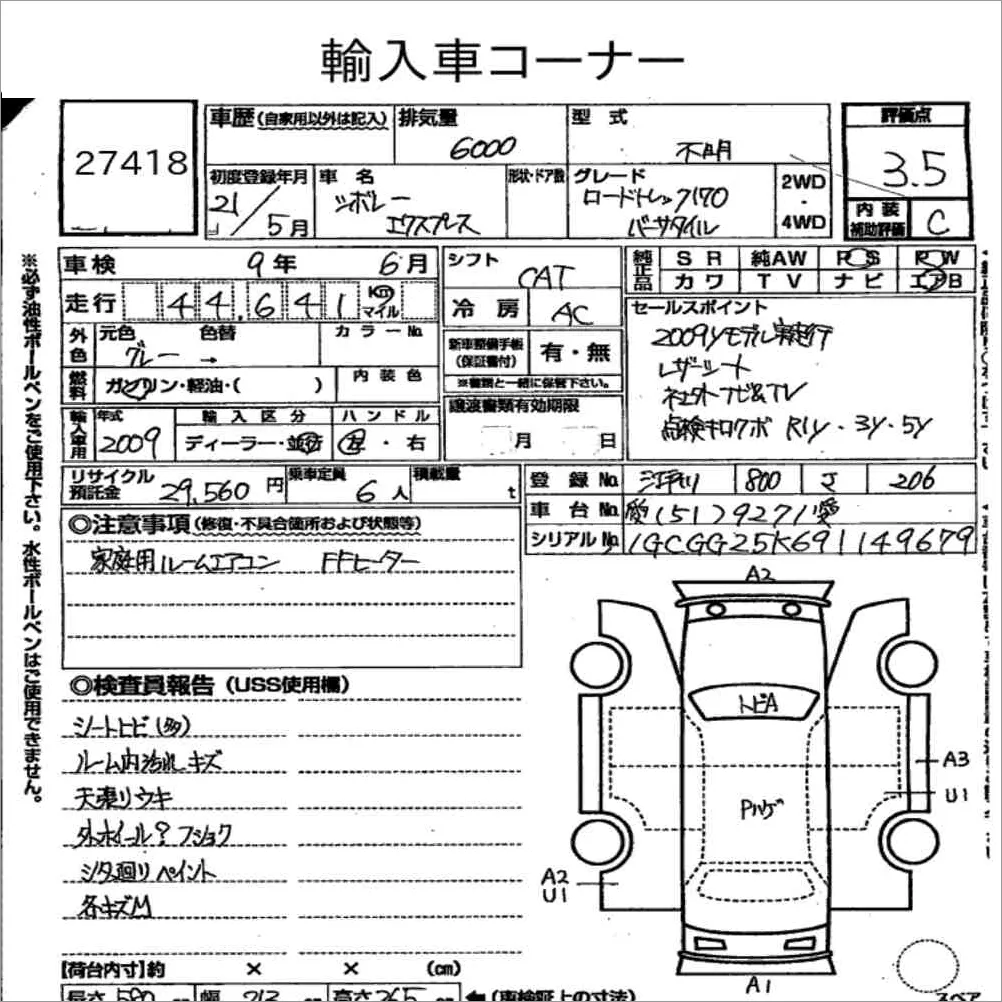 輸入車コーナー
27418
車歴(自家用以外は記入) 排気量 6000 型式 不明
評価点 3.5
初度登録年月 21/5月 車名 シボレー エクスプレス 形状・ドア数 グレード ロードトレック170 バーサタイル 2WD ・ 4WD
内装補助評価 C
車検 9年 6月 シフト CAT 純正品 SR 純AW PS PW
カワ TV ナビ エアB
走行 44,641 Km マイル 冷房 AC
セールスポイント
2009yモデル実走行
レザーシート
社外ナビ&TV
点検キロクボ R1y・3y・5y
外色 元色 グレー → 色替 カラーNo.
新車整備手帳(保証書付) 有・無
※書類と一緒に保管下さい。
燃料 ガソリン・軽油・( ) 内装色
譲渡書類有効期限 月 日
輸入車用 年式 2009 輸入区分 ディーラー・並行 ハンドル 左・右
リサイクル預託金 29,560円 乗車定員 6人 積載量 t
登録No. 800 206
車台No. (51)79271
シリアルNo. 1GCGG25K691149679
◎注意事項(修復・不具合箇所および状態等)
家庭用ルームエアコン FFヒーター
◎検査員報告(USS使用欄)
シートトビ(多)
ルーム内汚れ キズ
天張りウキ
外ホイール? フショク
シタ廻りペイント
各キズM
A2
トビA
A3
U1
Pハゲ
A2
U1
A1
スペア
【荷台内寸】約 × × (cm)
長さ 580 幅 213 高さ 265 (車検証上の寸法)
※必ず油性ボールペンをご使用下さい。水性ボールペンはご使用できません。